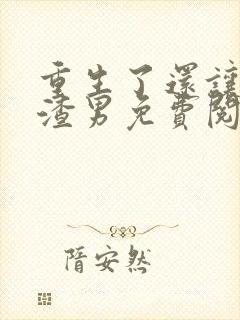 重生了還讓
渣男免費閱
隋安然